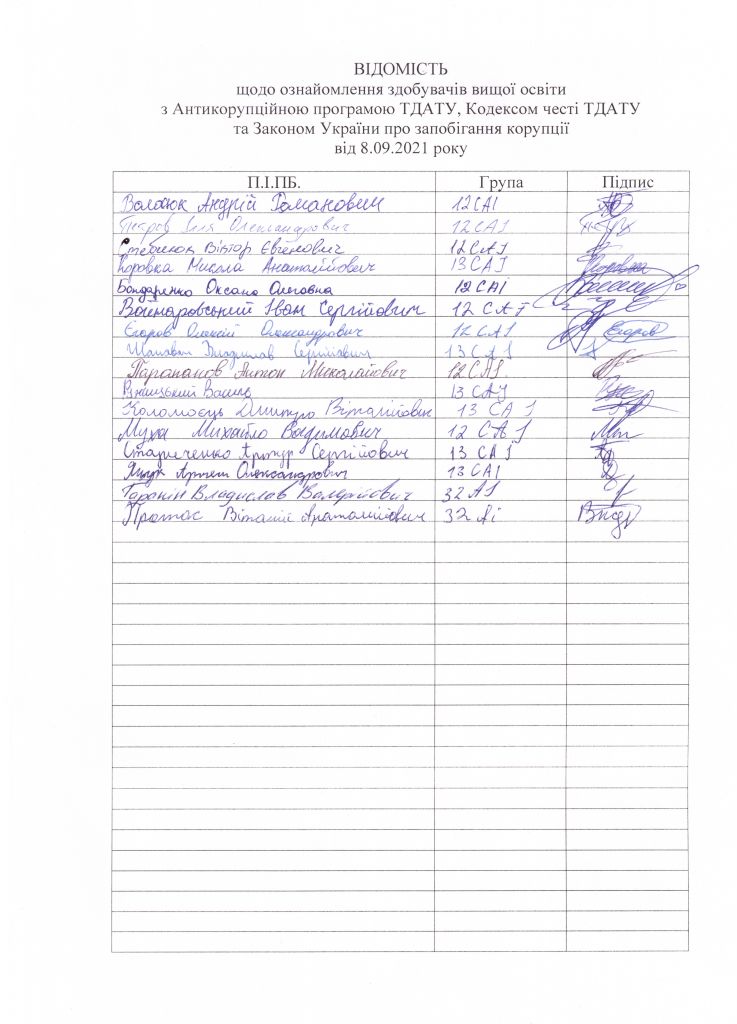 ВІДОМІСТЬ
щодо ознайомлення здобувачів вищої освіти
з Антикорупційною програмою ТДАТУ, Кодексом честі ТДАТУ
та Законом України про запобігання корупції
від 8.09.2021 року
П.І.ПБ. Група Підпис
Андрій Романович 12 САІ
Петров Ілля Олександрович 12 САІ
Віктор Євгенович 12 САІ
Коровка Микола Анатолійович 13 САІ Коровка
Бондаренко Оксана Олегівна 12 САІ
Войнаровський Іван Сергійович 12 САІ
Єгоров Олексій Олександрович 12 САІ Єгоров
Владислав Сергійович 13 САІ
Антон Миколайович 12 САІ
Василь 13 САІ
Коломоєць Дмитро Віталійович 13 САІ
Муха Михайло Вадимович 12 САІ
Стариченко Артур Сергійович 13 САІ
Ящук Артем Олександрович 13 САІ
Гаранін Владислав Валерійович 32 АІ
Протас Віталій Анатолійович 32 АІ